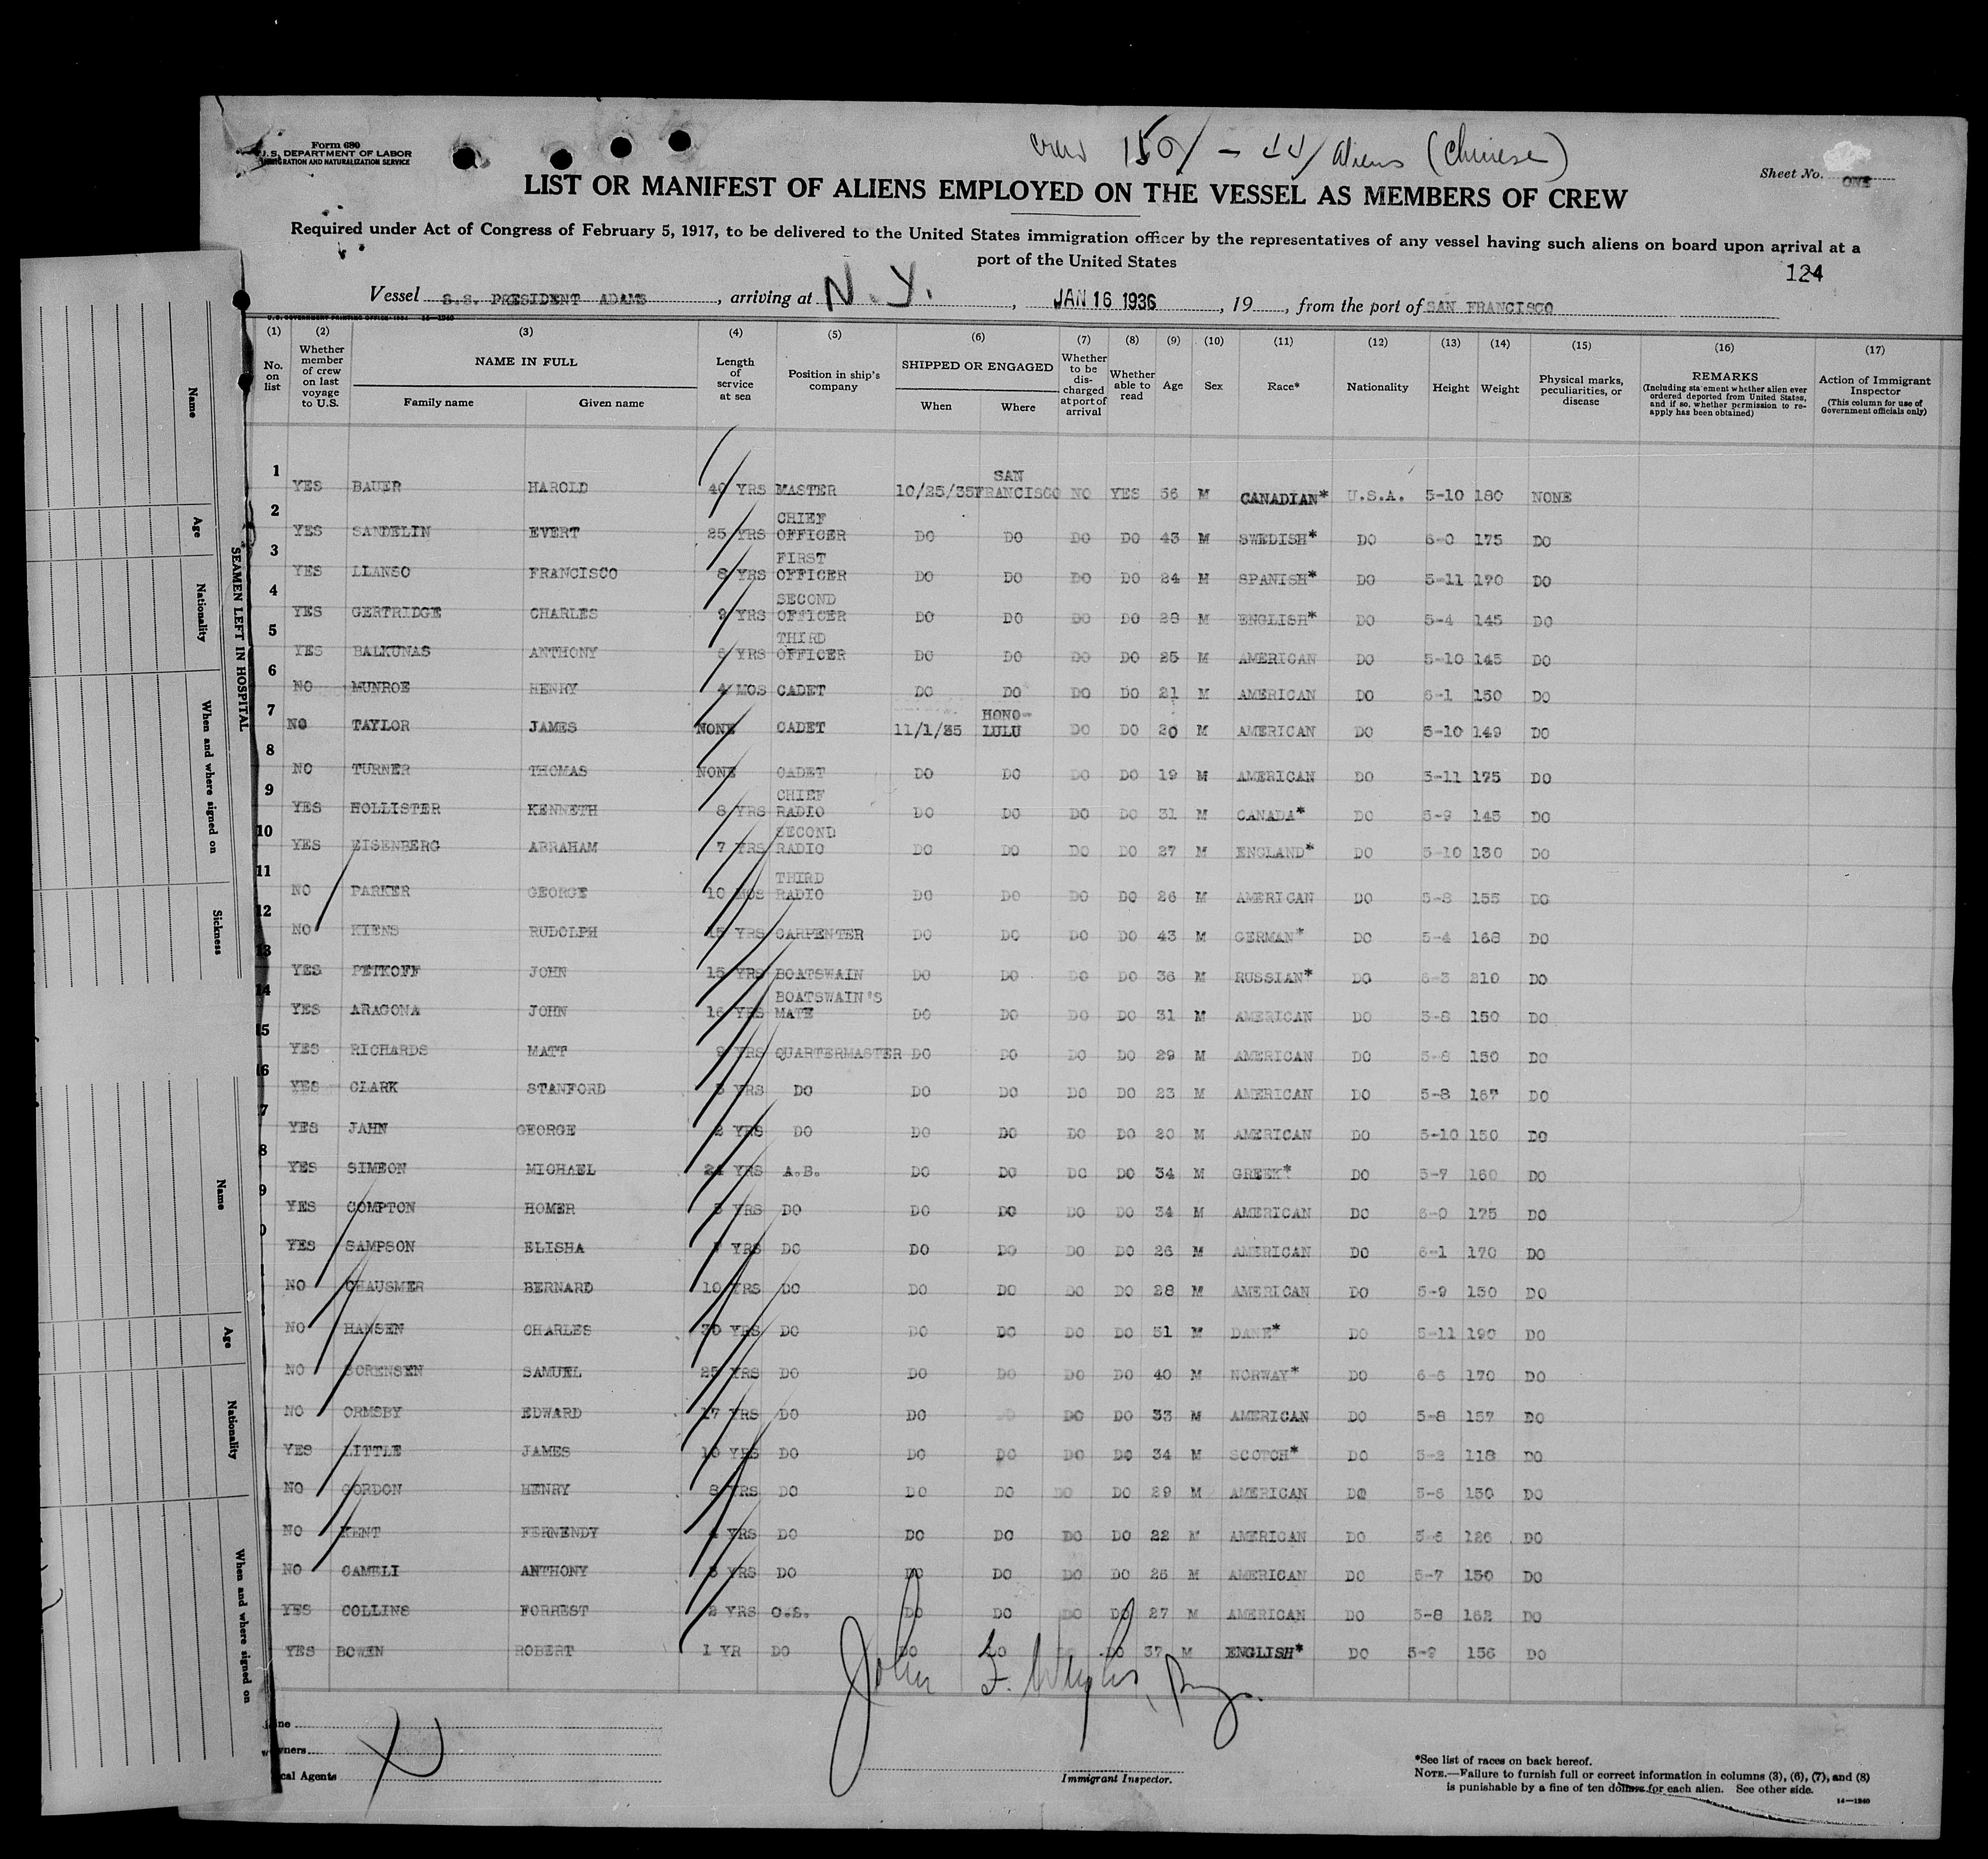 Form 680
U.S. DEPARTMENT OF LABOR
IMMIGRATION AND NATURALIZATION SERVICE
Crew 150/ - 44/ aliens (Chinese)
Sheet No. ONE
LIST OR MANIFEST OF ALIENS EMPLOYED ON THE VESSEL AS MEMBERS OF CREW
Required under Act of Congress of February 5, 1917, to be delivered to the United States immigration officer by the representatives of any vessel having such aliens on board upon arrival at a
port of the United States
124
Vessel S.S. PRESIDENT ADAMS, arriving at N.Y., JAN 16 1936, 19, from the port of SAN FRANCISCO
U.S. GOVERNMENT PRINTING OFFICE 14—1240
(1) (2) (3) (4) (5) (6) (7) (8) (9) (10) (11) (12) (13) (14) (15) (16) (17)
No. on list
Whether member of crew on last voyage to U.S.
NAME IN FULL
Family name Given name
Length of service at sea
Position in ship's company
SHIPPED OR ENGAGED
When Where
Whether to be discharged at port of arrival
Whether able to read
Age
Sex
Race*
Nationality
Height
Weight
Physical marks, peculiarities, or disease
REMARKS
(Including statement whether alien ever ordered deported from United States, and if so, whether permission to reapply has been obtained)
Action of Immigrant Inspector
(This column for use of Government officials only)
1 YES BAUER HAROLD 40 YRS MASTER 10/25/35 SAN FRANCISCO NO YES 56 M CANADIAN* U.S.A. 5-10 180 NONE
2 YES SANDELIN EVERT 25 YRS CHIEF OFFICER DO DO DO DO 43 M SWEDISH* DO 6-0 175 DO
3 YES LLANSO FRANCISCO 8 YRS FIRST OFFICER DO DO DO DO 24 M SPANISH* DO 5-11 170 DO
4 YES GERTRIDGE CHARLES 9 YRS SECOND OFFICER DO DO DO DO 28 M ENGLISH* DO 5-4 145 DO
5 YES BALKUNAS ANTHONY 6 YRS THIRD OFFICER DO DO DO DO 25 M AMERICAN DO 5-10 145 DO
6 NO MUNROE HENRY 4 MOS CADET DO DO DO DO 21 M AMERICAN DO 6-1 150 DO
7 NO TAYLOR JAMES NONE CADET 11/1/35 HONO-LULU DO DO 20 M AMERICAN DO 5-10 149 DO
8 NO TURNER THOMAS NONE CADET DO DO DO DO 19 M AMERICAN DO 5-11 175 DO
9 YES HOLLISTER KENNETH 8 YRS CHIEF RADIO DO DO DO DO 31 M CANADA* DO 5-9 145 DO
10 YES EISENBERG ABRAHAM 7 YRS SECOND RADIO DO DO DO DO 27 M ENGLAND* DO 5-10 130 DO
11 NO PARKER GEORGE 10 MOS THIRD RADIO DO DO DO DO 26 M AMERICAN DO 5-8 155 DO
12 NO KIENS RUDOLPH 15 YRS CARPENTER DO DO DO DO 43 M GERMAN* DO 5-4 168 DO
13 YES PETKOFF JOHN 15 YRS BOATSWAIN DO DO DO DO 36 M RUSSIAN* DO 6-3 210 DO
14 YES ARAGONA JOHN 16 YRS BOATSWAIN'S MATE DO DO DO DO 31 M AMERICAN DO 5-8 150 DO
15 YES RICHARDS MATT 9 YRS QUARTERMASTER DO DO DO DO 29 M AMERICAN DO 5-8 150 DO
6 YES CLARK STANFORD YRS DO DO DO DO DO 23 M AMERICAN DO 5-8 167 DO
7 YES JAHN GEORGE 2 YRS DO DO DO DO DO 20 M AMERICAN DO 5-10 150 DO
8 YES SIMEON MICHAEL YRS A.B. DO DO DO DO 34 M GREEK* DO 5-7 160 DO
9 YES COMPTON HOMER YRS DO DO DO DO DO 34 M AMERICAN DO 6-0 175 DO
0 YES SAMPSON ELISHA YRS DO DO DO DO DO 26 M AMERICAN DO 6-1 170 DO
NO CHAUSMER BERNARD 10 YRS DO DO DO DO DO 28 M AMERICAN DO 5-9 150 DO
NO HANSEN CHARLES 30 YRS DO DO DO DO DO 51 M DANE* DO 5-11 190 DO
NO SORENSEN SAMUEL 25 YRS DO DO DO DO DO 40 M NORWAY* DO 170 DO
NO ORMSBY EDWARD 17 YRS DO DO DO DO DO 33 M AMERICAN DO 5-8 157 DO
YES LITTLE JAMES 10 YRS DO DO DO DO DO 34 M SCOTCH* DO 5-2 118 DO
NO GORDON HENRY 8 YRS DO DO DO DO DO 29 M AMERICAN DO 5-6 150 DO
NO KENT FERNENDY YRS DO DO DO DO DO 22 M AMERICAN DO 5-6 126 DO
NO CAMELI ANTHONY YRS DO DO DO DO DO 26 M AMERICAN DO 5-7 150 DO
YES COLLINS FORREST 2 YRS O.S. DO DO DO DO 27 M AMERICAN DO 5-8 162 DO
YES BOWEN ROBERT 1 YR DO DO DO DO DO 37 M ENGLISH* DO 5-9 156 DO
John F.
Immigrant Inspector.
Line
Owners
cal Agents
*See list of races on back hereof.
NOTE.—Failure to furnish full or correct information in columns (3), (6), (7), and (8)
is punishable by a fine of ten dollars for each alien. See other side.
14—1240
SEAMEN LEFT IN HOSPITAL
Name
Age
Nationality
When and where signed on
Sickness
Name
Age
Nationality
When and where signed on